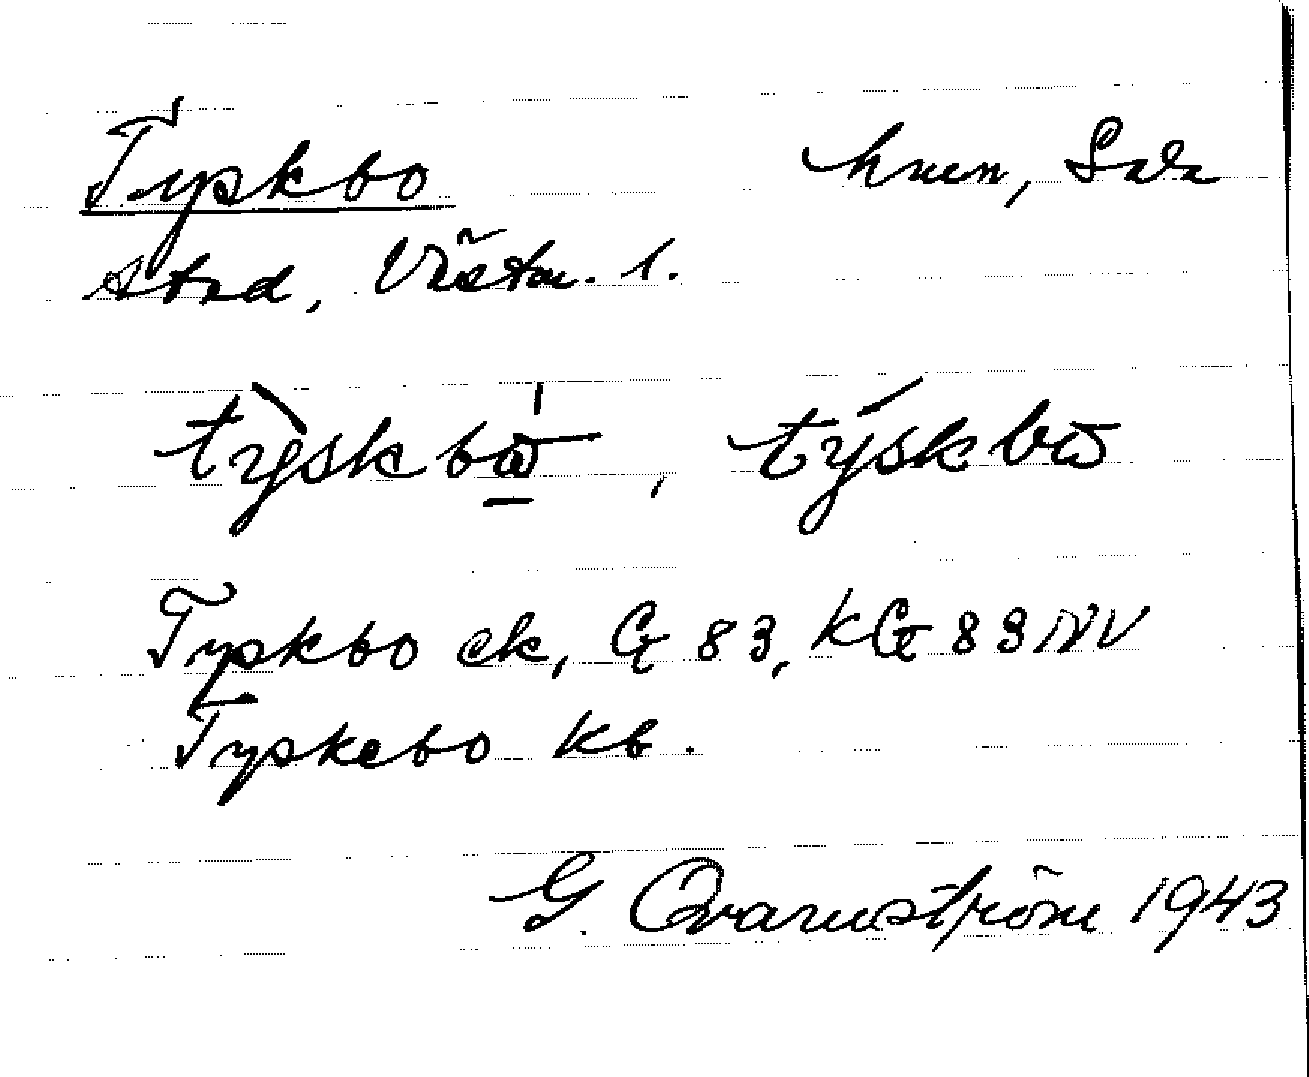 Tyskbo hmn, Sala
stad, Västm. l.
tỳskbω̄̍, týskbω
Tyskbo ek, G 83, KG 83 NV
Tyskebo Kb.
G. Qvarnström 1943